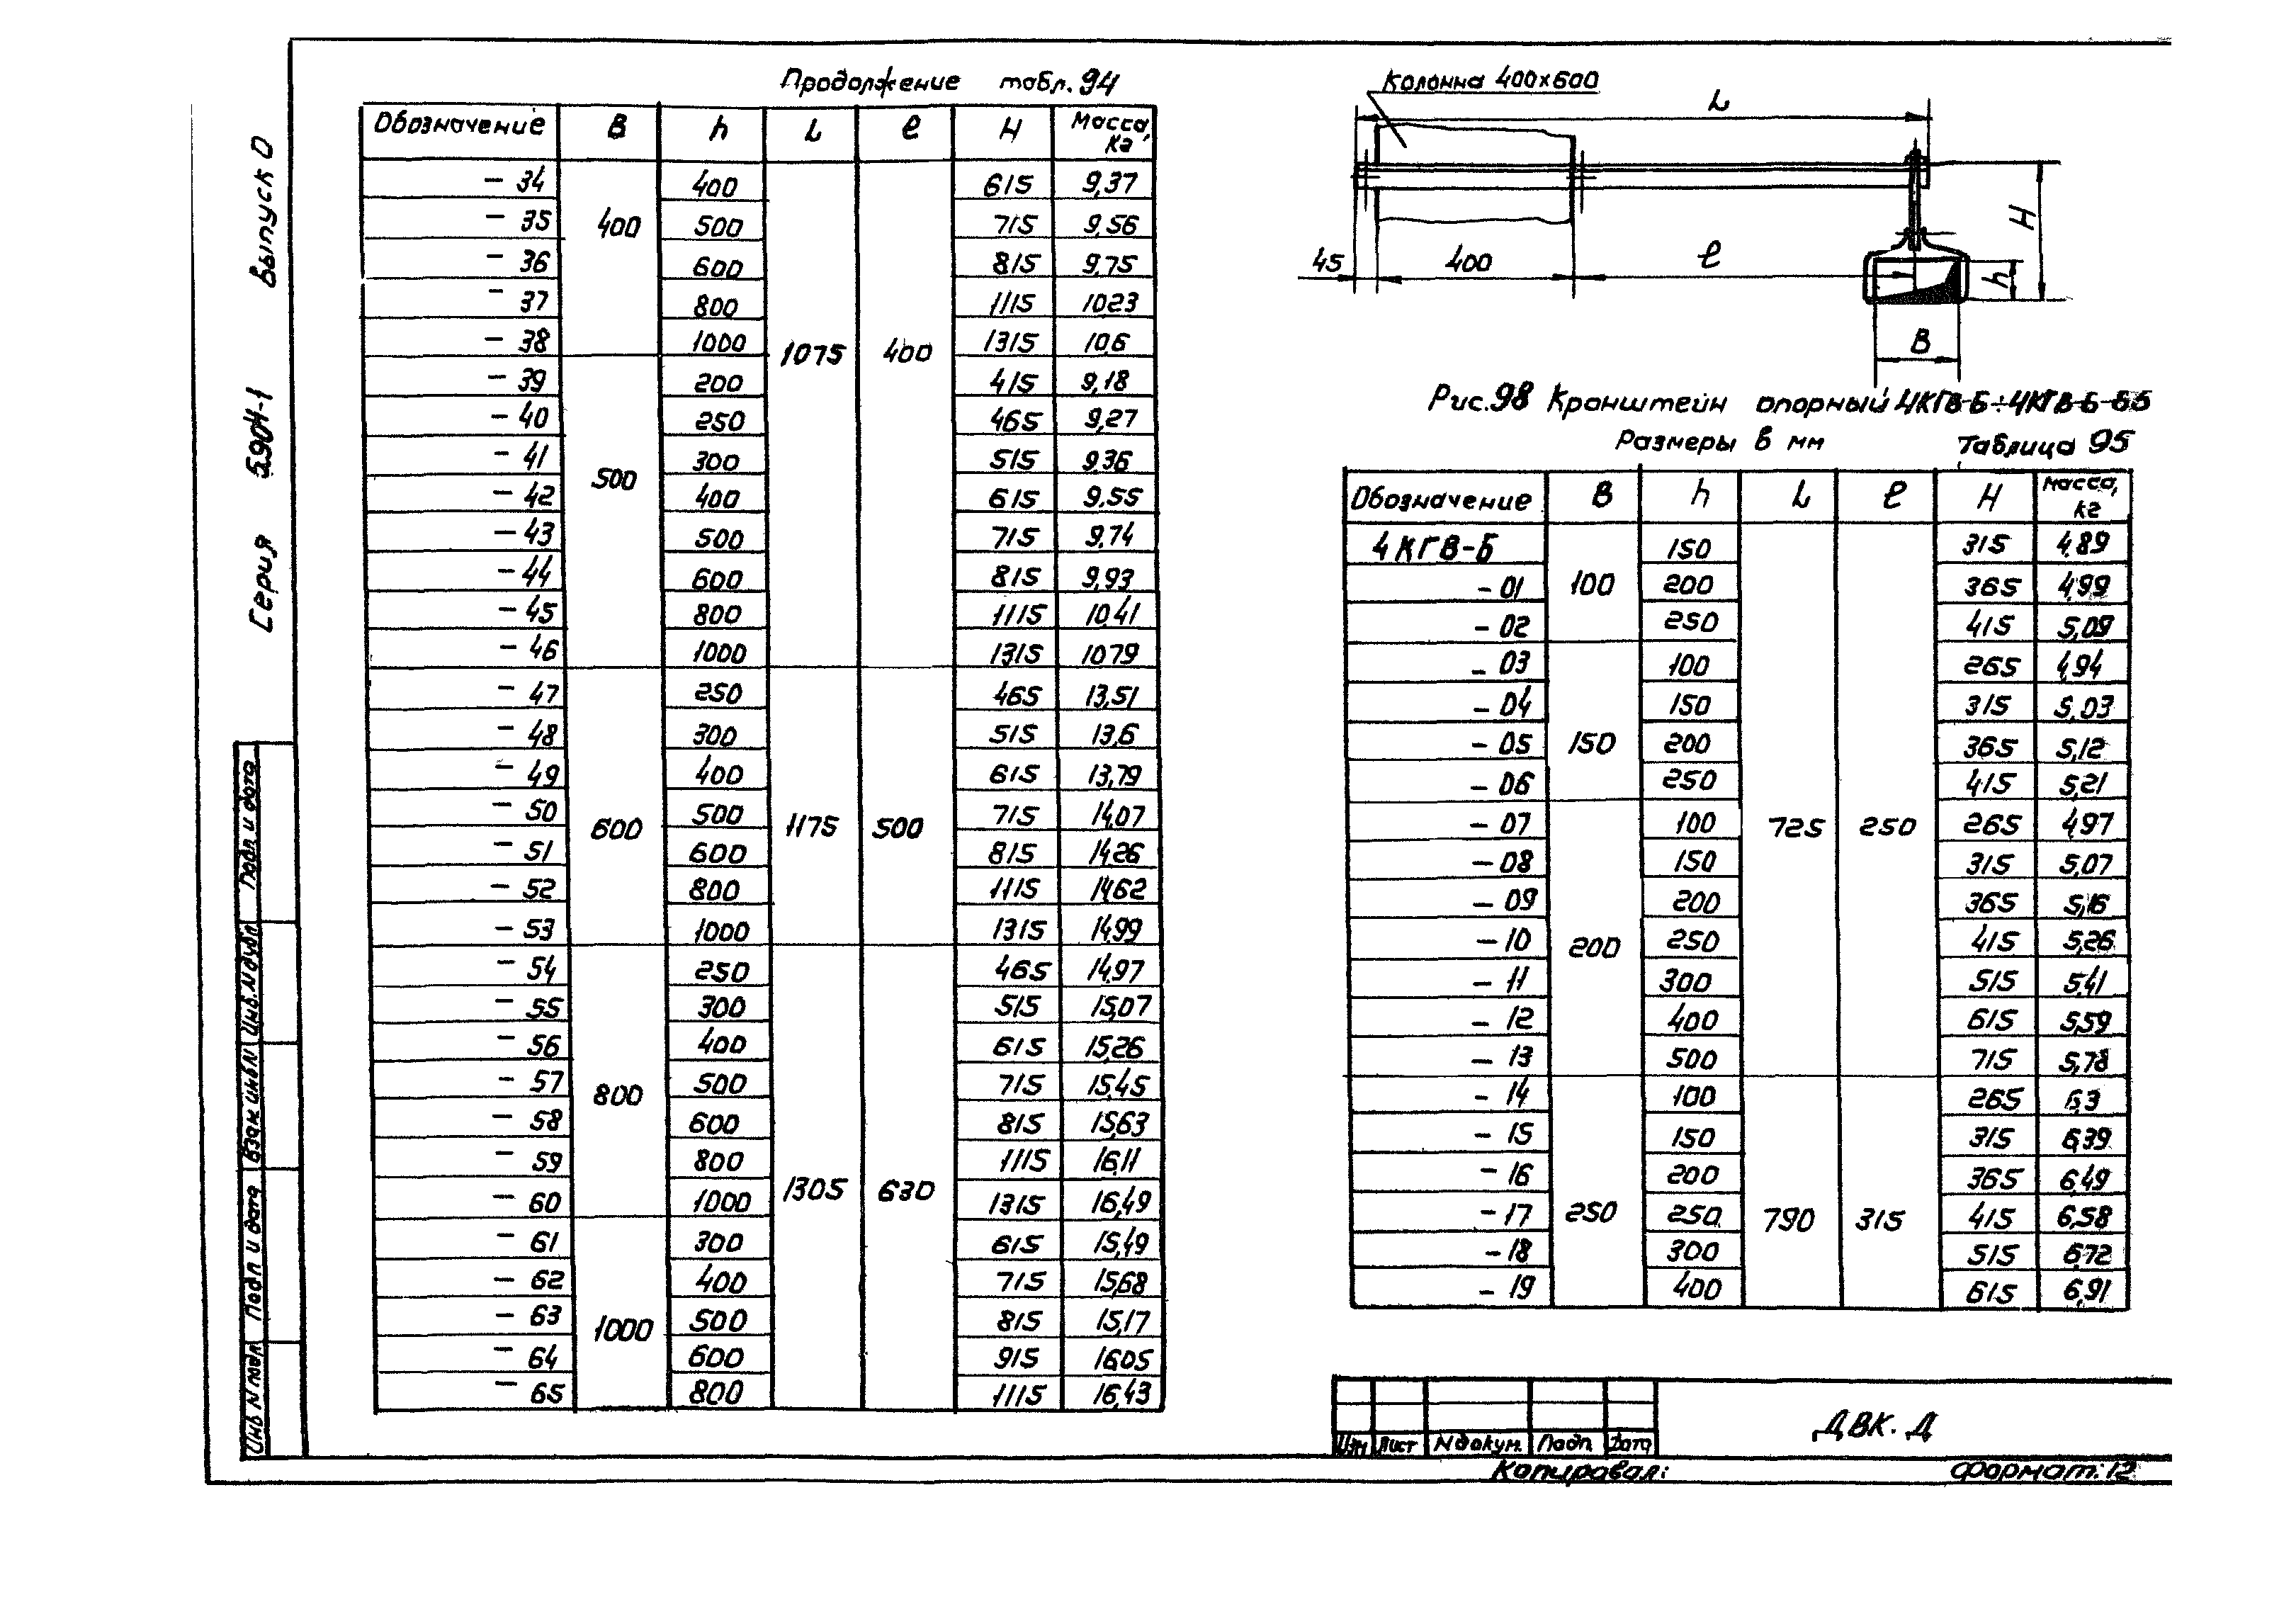 Продолжение табл. 94
Обозначение B h L ℓ H Масса, кг
- 34 400 400 1075 400 615 9,37
- 35 500 715 9,56
- 36 600 815 9,75
- 37 800 1115 1023
- 38 1000 1315 10,6
- 39 500 200 415 9,18
- 40 250 465 9,27
- 41 300 515 9,36
- 42 400 615 9,55
- 43 500 715 9,74
- 44 600 815 9,93
- 45 800 1115 10,41
- 46 1000 1315 1079
- 47 600 250 1175 500 465 13,51
- 48 300 515 13,6
- 49 400 615 13,79
- 50 500 715 14,07
- 51 600 815 14,26
- 52 800 1115 14,62
- 53 1000 1315 14,99
- 54 800 250 1305 630 465 14,97
- 55 300 515 15,07
- 56 400 615 15,26
- 57 500 715 15,45
- 58 600 815 15,63
- 59 800 1115 16,11
- 60 1000 1315 16,49
- 61 1000 300 615 15,49
- 62 400 715 15,68
- 63 500 815 15,17
- 64 600 915 16,05
- 65 800 1115 16,43
Колонна 400×600
L
H
45 400 ℓ h
B
Рис.98 Кронштейн опорный 4КГВ-Б÷4КГВ-Б-65
Размеры в мм Таблица 95
Обозначение B h L ℓ H Масса, кг
4КГВ-Б 100 150 725 250 315 4,89
- 01 200 365 4,99
- 02 250 415 5,09
- 03 150 100 265 4,94
- 04 150 315 5,03
- 05 200 365 5,12
- 06 250 415 5,21
- 07 200 100 265 4,97
- 08 150 315 5,07
- 09 200 365 5,16
- 10 250 415 5,26
- 11 300 515 5,41
- 12 400 615 5,59
- 13 500 715 5,78
- 14 250 100 790 315 265 6,3
- 15 150 315 6,39
- 16 200 365 6,49
- 17 250 415 6,58
- 18 300 515 6,72
- 19 400 615 6,91
Серия 5.904-1 Выпуск 0
Инв N подл Подп и дата Взам инв.N Инв.N дубл Подп. и дата
Изм Лист N докум. Подп. Дата
ДВК. Д
Копировал: Формат: 12